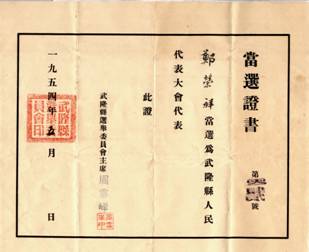 當選證書
第 號
鄭榮祥當選爲武隆縣人民
代表大會代表
此證
武隆縣選舉委員會主席
一九五四年 月 日